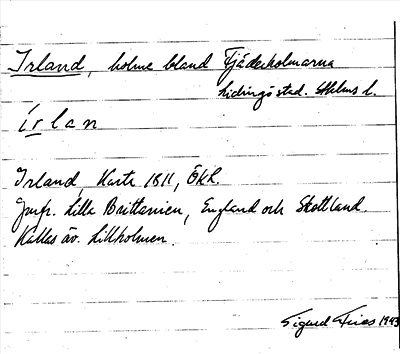 Irland, holme bland Fjäderholmarna
Lidingö stad. Sthlms l.
írlan
Irland, Karta 1811, ÖkR.
Jmfr. Lilla Brittanien, England och Skottland.
Kallas äv. Lillholmen.
Sigurd Fries 1943